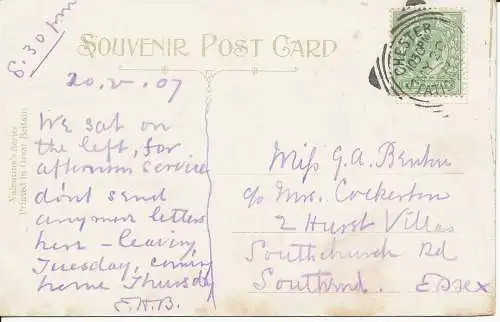 8.30 pm
SOUVENIR POST CARD
20.V.07
We sat on
the left, for
afternoon service
don't send
any more letters
here - leaving
Tuesday, coming
home Thursday
E.H.B.
Valentine's Series
Printed in Great Britain
CHESTER
STATION
Miss G.A. Benton
c/o Mrs. Cockerton
2 Hurst Villas
Southchurch Rd
Southend. Essex